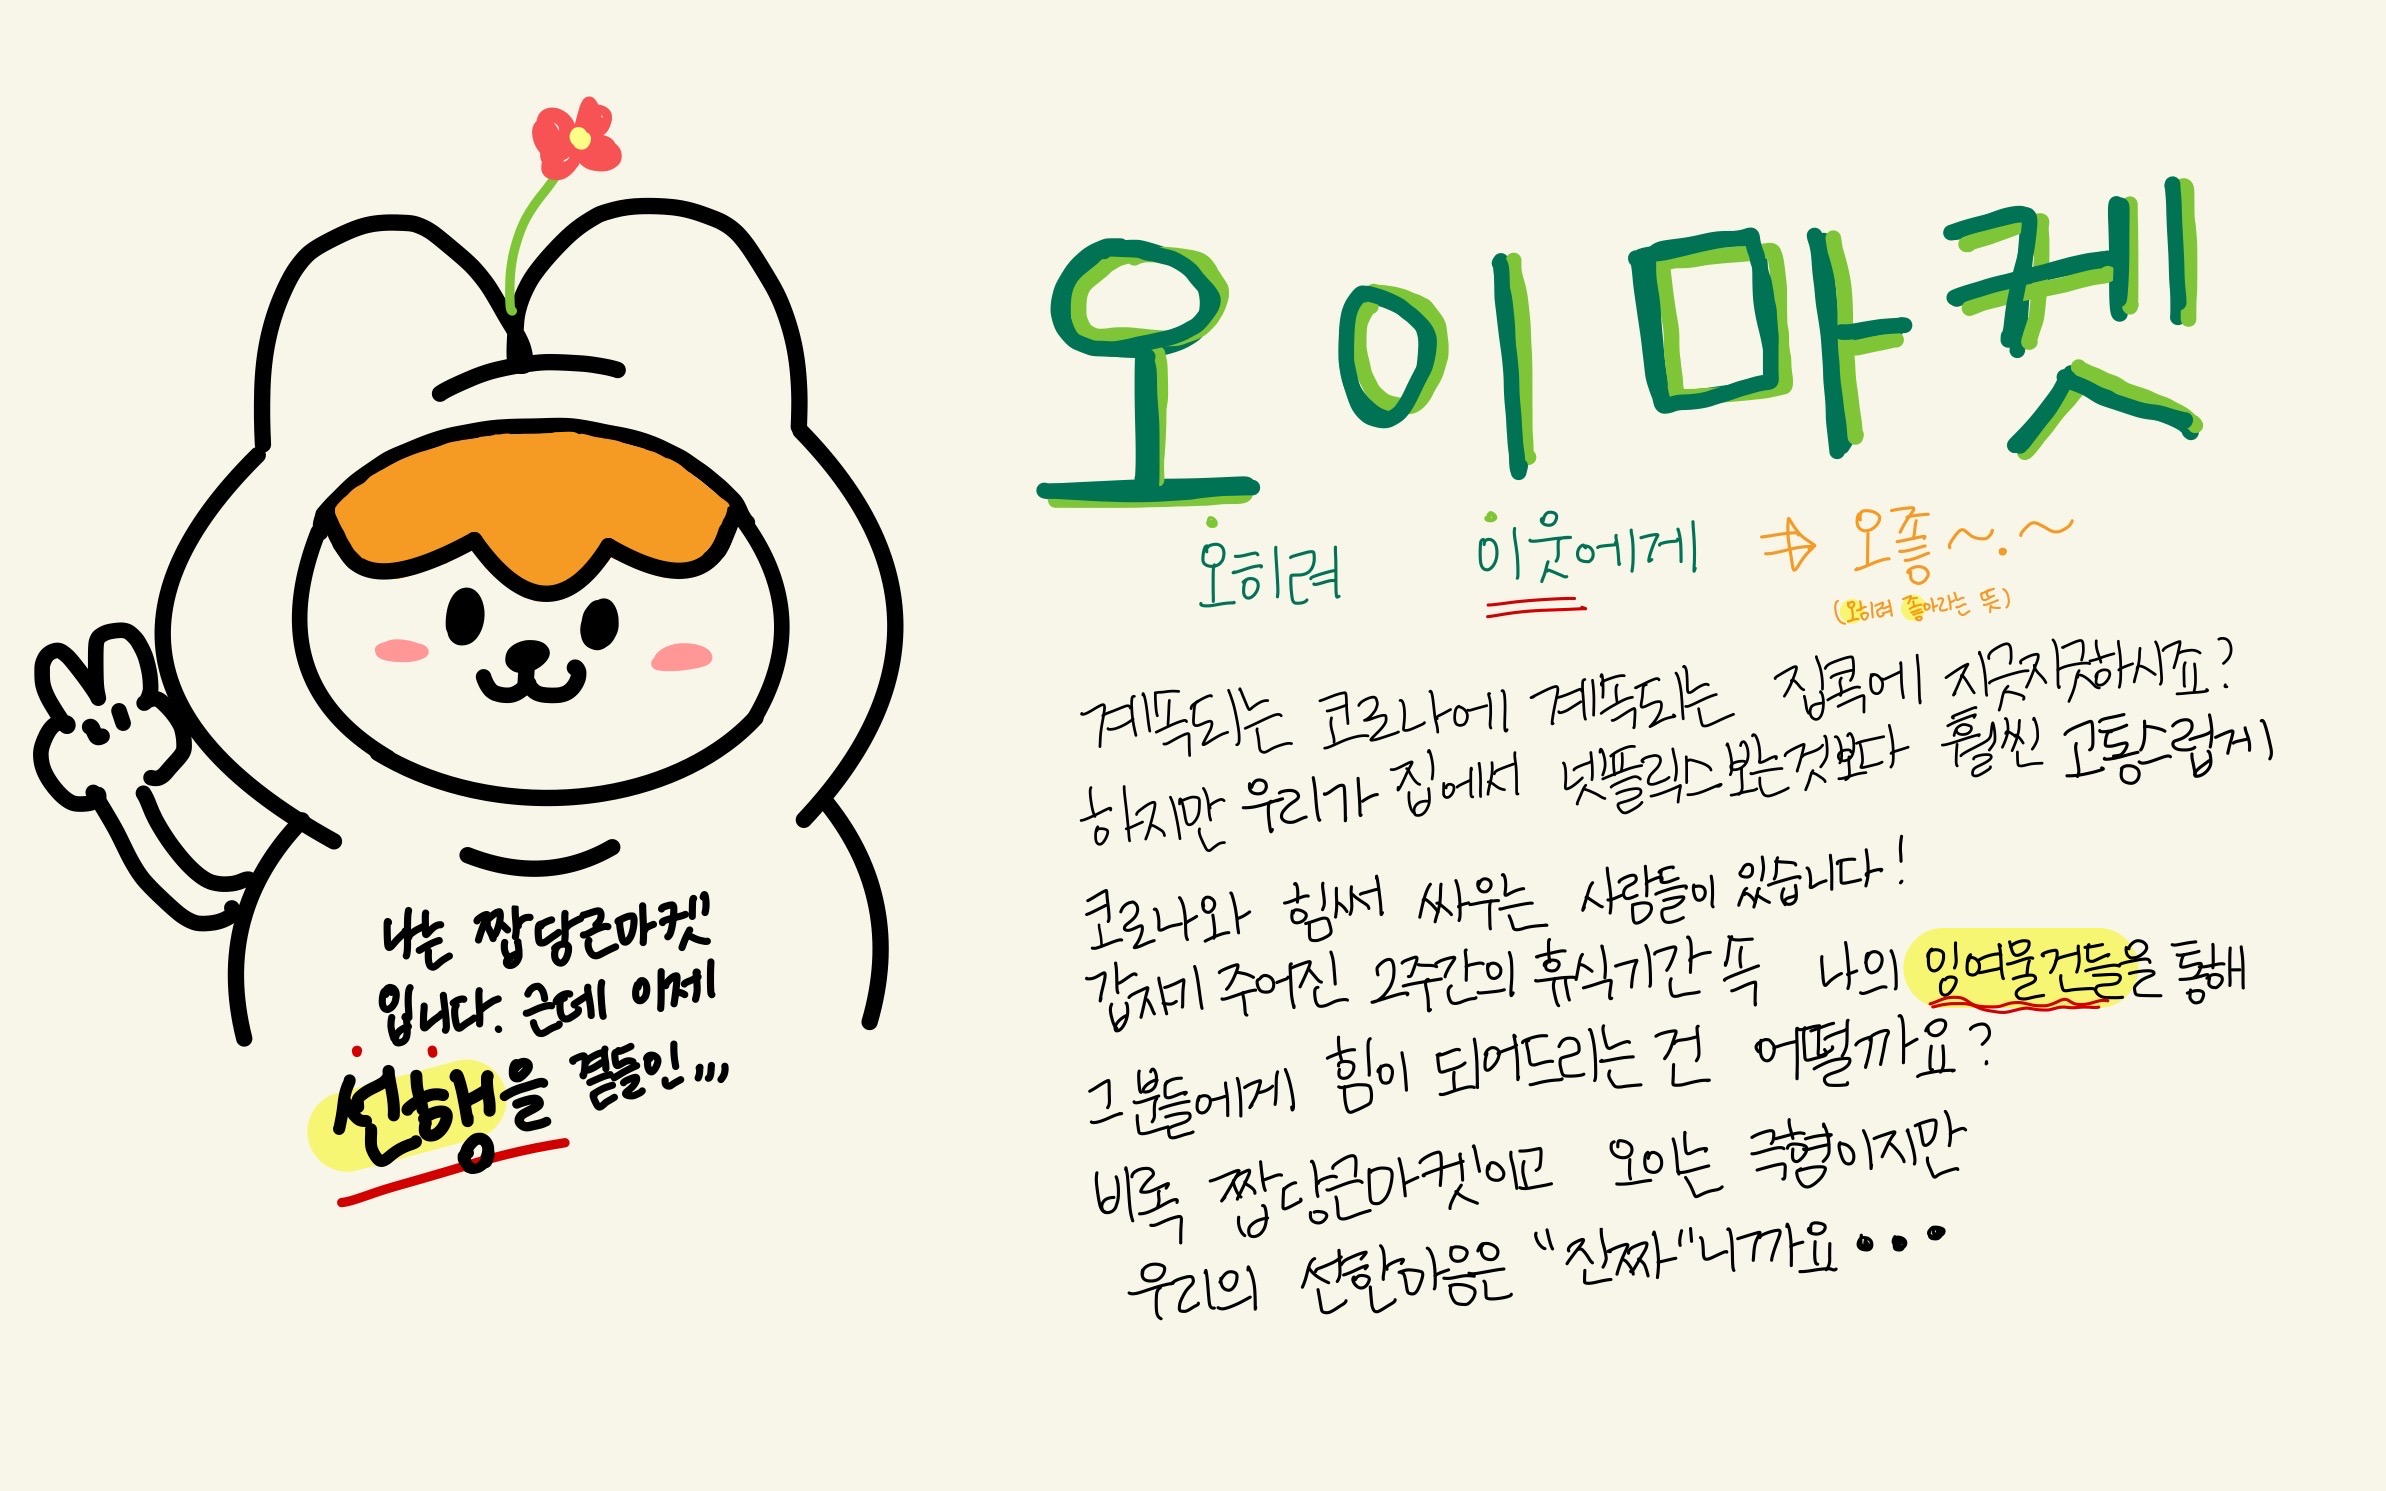 오이마켓
오히려 이웃에게 → 오좋~.~
(오히려 좋아라는 뜻)
계속되는 코로나에 계속되는 집콕에 지긋지긋하시죠?
하지만 우리가 집에서 넷플릭스보는것보다 훨씬 고통스럽게
코로나와 힘써 싸우는 사람들이 있습니다!
갑자기 주어진 2주간의 휴식기간 속 나의 잉여물건들을 통해
그분들에게 힘이 되어드리는 건 어떨까요?
비록 짭당근마켓이고 오이는 극혐이지만
우리의 선한마음은 "진짜"니까요...
나는 짭당근마켓
입니다. 근데 이제
선행을 곁들인...